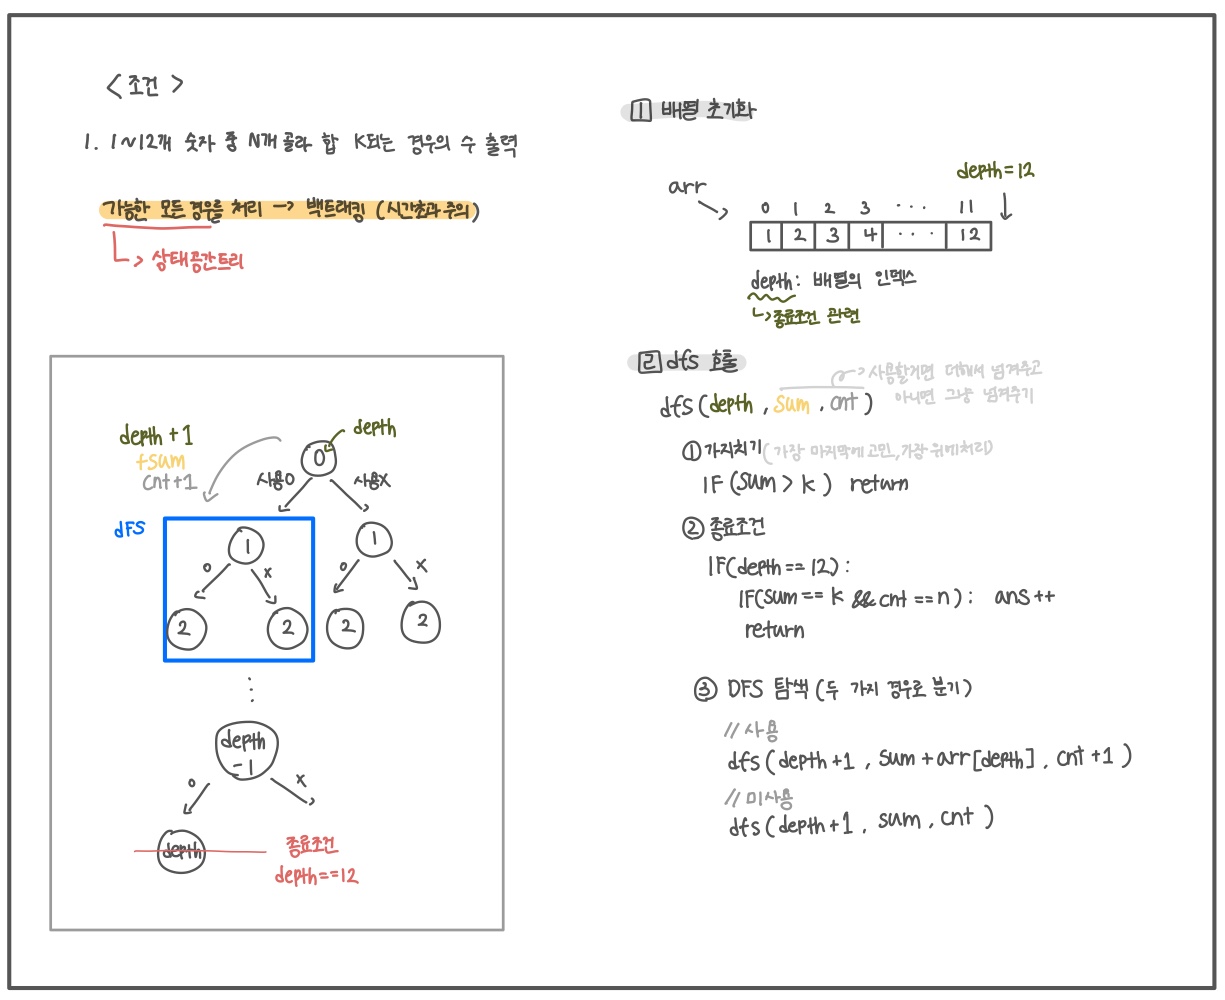 <조건>
1. 1~12개 숫자 중 N개 골라 합 K되는 경우의 수 출력
가능한 모든 경우를 처리 -> 백트래킹 (시간초과 주의)
↳ 상태공간트리
depth+1
+sum
cnt+1
depth
0
사용O
사용X
dFS
1
1
O
X
O
X
2
2
2
2
⋮
depth
-1
O
X
depth
종료조건
depth==12
1 배열 초기화
depth=12
arr
0 1 2 3 ··· 11
1 2 3 4 ··· 12
depth: 배열의 인덱스
↳종료조건 관련
2 dfs 호출
->사용할거면 더해서 넘겨주고
아니면 그냥 넘겨주기
dfs(depth, sum, cnt)
① 가지치기 (가장 마지막에 고민, 가장 위에 처리)
IF (sum > k) return
② 종료조건
IF(depth == 12):
IF(sum == k && cnt == n): ans++
return
③ DFS 탐색 (두 가지 경우로 분기)
// 사용
dfs(depth+1, sum+arr[depth], cnt+1)
// 미사용
dfs(depth+1, sum, cnt)